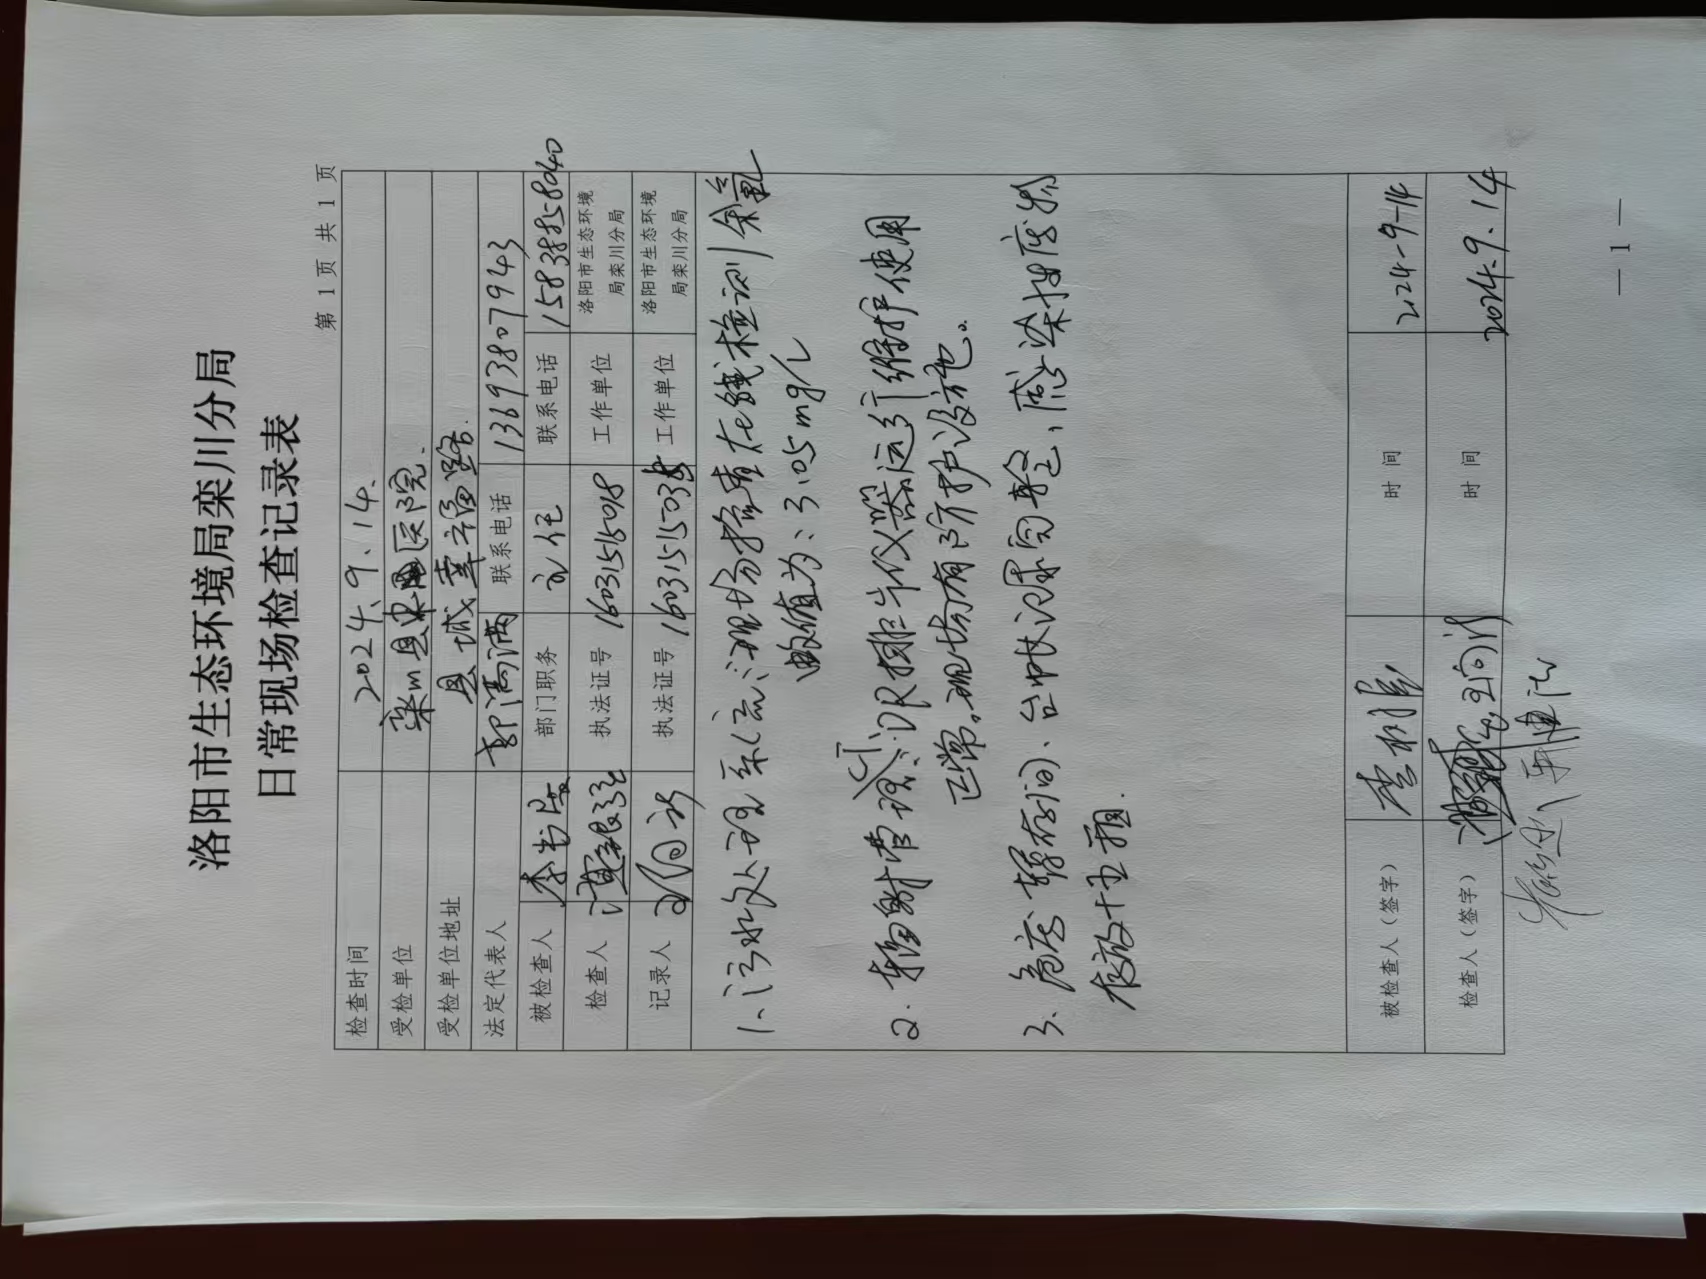 洛阳市生态环境局栾川分局
日常现场检查记录表
第 1 页 共 1 页
检查时间 2024.9.14.
受检单位 栾川县中医院.
受检单位地址 县城幸福路.
法定代表人 郭高满 联系电话 13693807943
被检查人 李书 部门职务 主任 联系电话 15838858040
检查人 执法证号 16031515018 工作单位 洛阳市生态环境局栾川分局
记录人 执法证号 16031515035 工作单位 洛阳市生态环境局栾川分局
1、污水处理系统:现场抽查在线检测余氯
数值为:3.05mg/L
2. 辐射管理:CT、DR 仪器运行维护使用
正常。现场有防护设施。
3. 危废暂存间、台账记录完整,感染性废物
存放十五箱.
被检查人(签字) 时间 2024-9-14
检查人(签字) 时间 2024.9.14
— 1 —